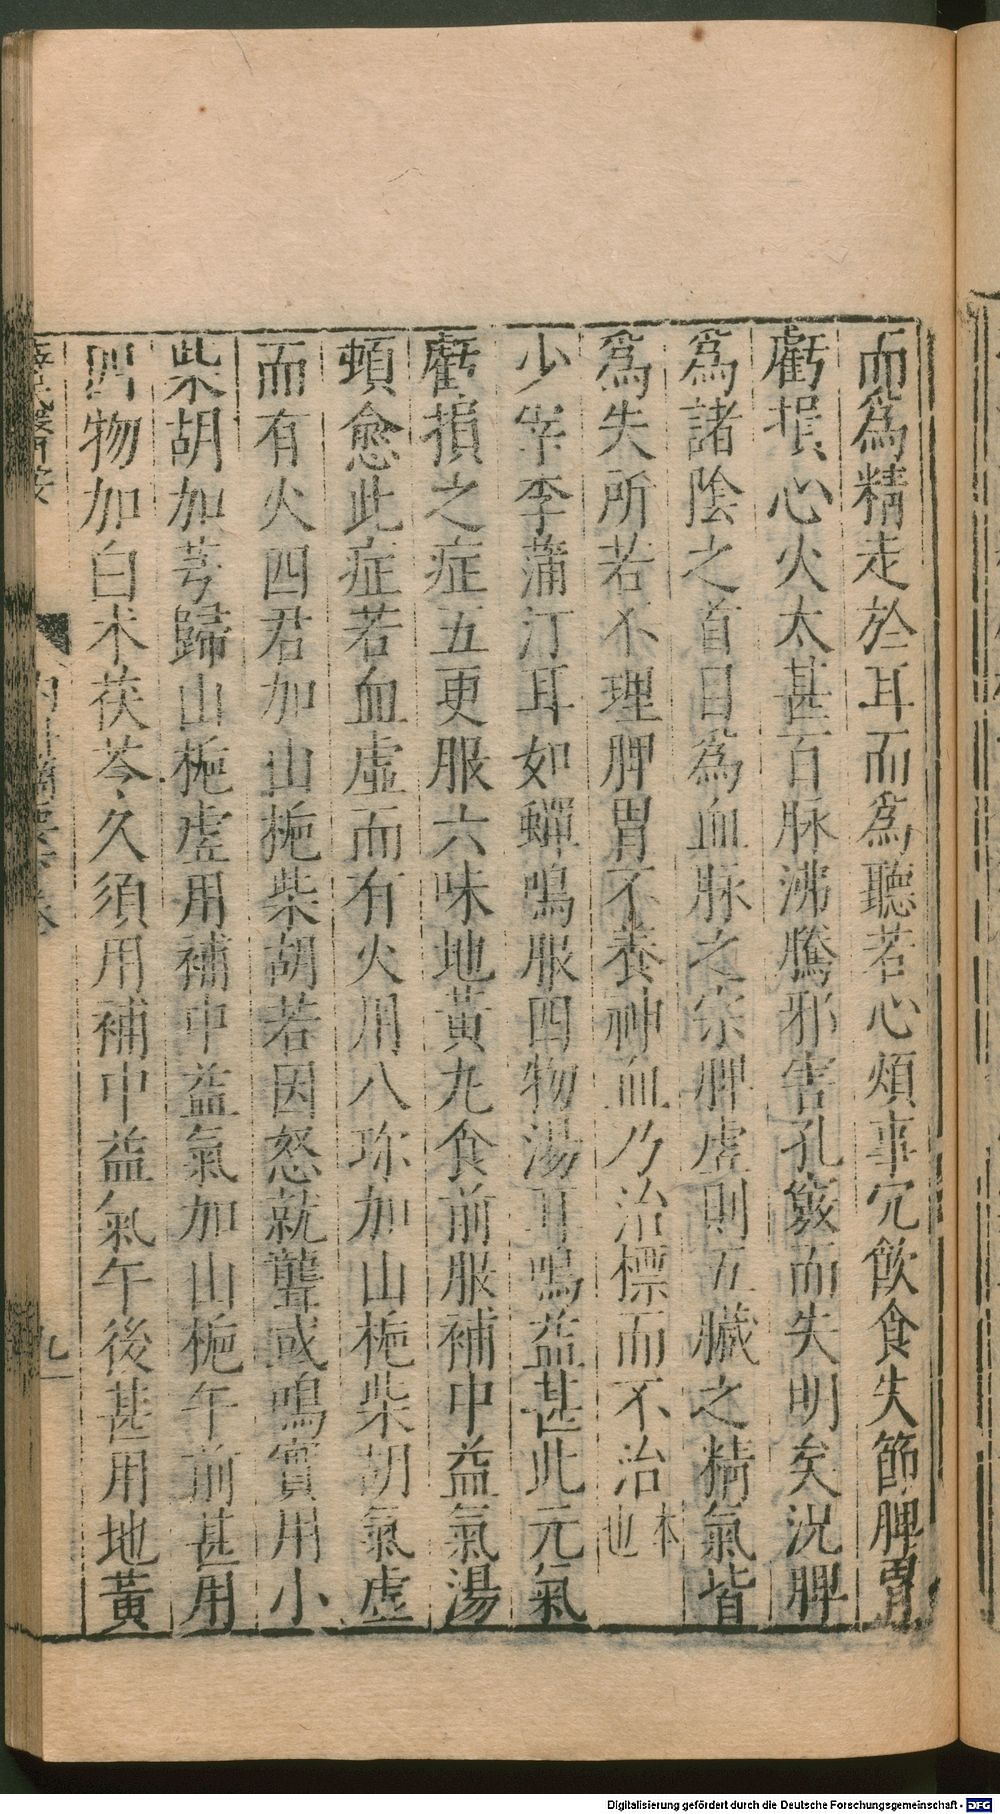 而爲精走於耳而爲聽若心煩事冗飲食失節脾胃
虧損心火太甚百脉沸騰邪害孔竅而失明矣況脾
爲諸陰之首目爲血脉之宗脾虛則五臟之精氣皆
爲失所若不理脾胃不養神血乃治標而不治本也
少宰李蒲汀耳如蟬鳴服四物湯耳鳴益甚此元氣
虧損之症五更服六味地黃丸食前服補中益氣湯
頓愈此症若血虛而有火用八珍加山梔柴胡氣虛
而有火四君加山梔柴胡若因怒就聾或鳴實用小
柴胡加芎歸山梔虛用補中益氣加山梔午前甚用
四物加白朮茯苓久須用補中益氣午後甚用地黃
內科摘要下卷 九
Digitalisierung gefördert durch die Deutsche Forschungsgemeinschaft - DFG